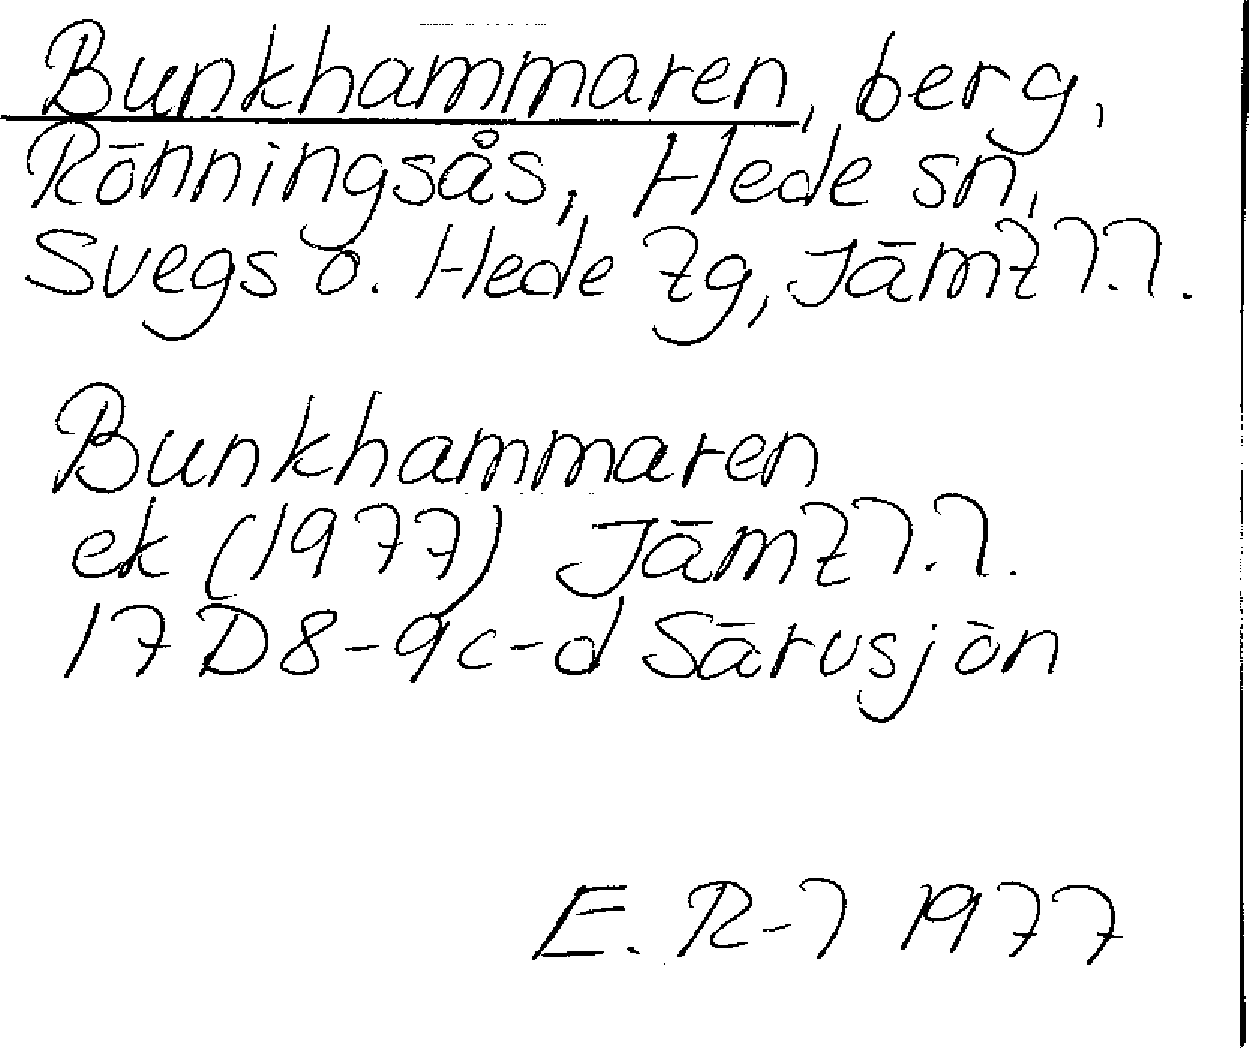 Bunkhammaren, berg,
Rönningsås, Hede sn,
Svegs o. Hede tg, Jämtl.l.
Bunkhammaren
ek (1977) Jämtl.l.
17 D8-9c-d Särvsjön
E. R-l 1977